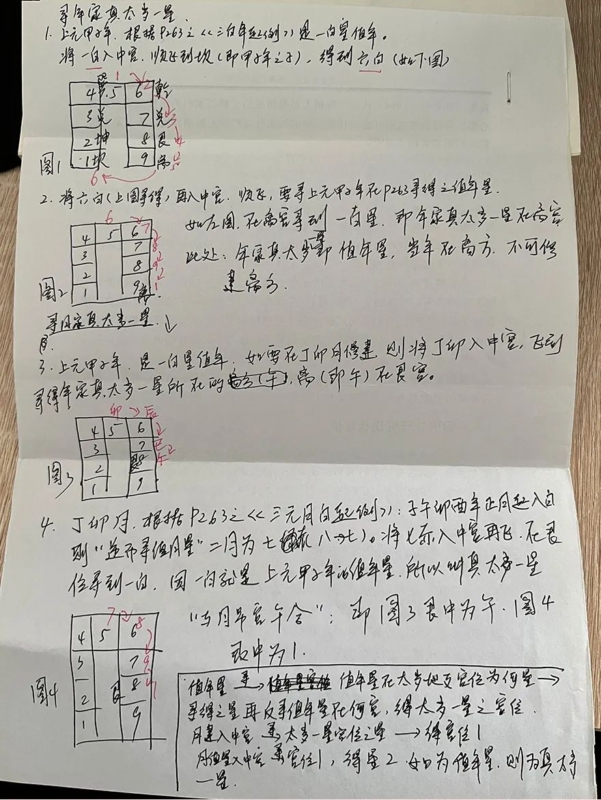 寻年家真太乡一星.
1. 上元甲子年. 根据P263之<<三白年起例>> 是一白星值年.
将一白入中宫. 顺飞到坎(即甲子年之子). 得到六白(如下图)
1 2
4 5 6 乾
3 兑 7 兑
2 坤 8 艮 4
1 坎 9 离 5
图1
6
2. 将六白(上图寻得)再入中宫. 顺飞, 要寻上元甲子年在P263寻得之值年星
6
4 5 6 7
3 7 8
2 8 9
1 9 1
图2
如左图. 在离宫寻到一白星. 即年家真太乡一星在离宫
此处: 年家真太乡即值年星, 当年在离方. 不可修
离方.
寻月家真太乡一星
3. 上元甲子年. 是一白星值年. 如要在丁卯月修 则将丁卯入中宫, 飞到
寻得年家真太乡一星所在的 离(即午)在艮宫.
卯 辰
4 5 6
3 7 巳
2 8 午
1 9
图3
4. 丁卯月. 根据P263之<<三元月白起例>>: 子午卯酉年正月起八白
则"逆而寻值月星"二月为七 (八→七). 将七赤入中宫再飞. 在艮
位寻到一白. 因一白就是上元甲子年的值年星. 所以叫真太乡一星
7 8
4 5 6
3 7 9
2 8 1
1 9
图4
"与月吊宫午合": 即图3艮中为午. 图4
艮中为1.
值年星 → 值年星在太岁地支宫位为何星 →
寻得之星再反寻值年星在何宫, 得太乡一星之宫位.
月建入中宫 太乡一星宫位之星 → 得宫位1
月值星入中宫 宫位1, 得星2 如为值年星. 则为真太乡
一星.